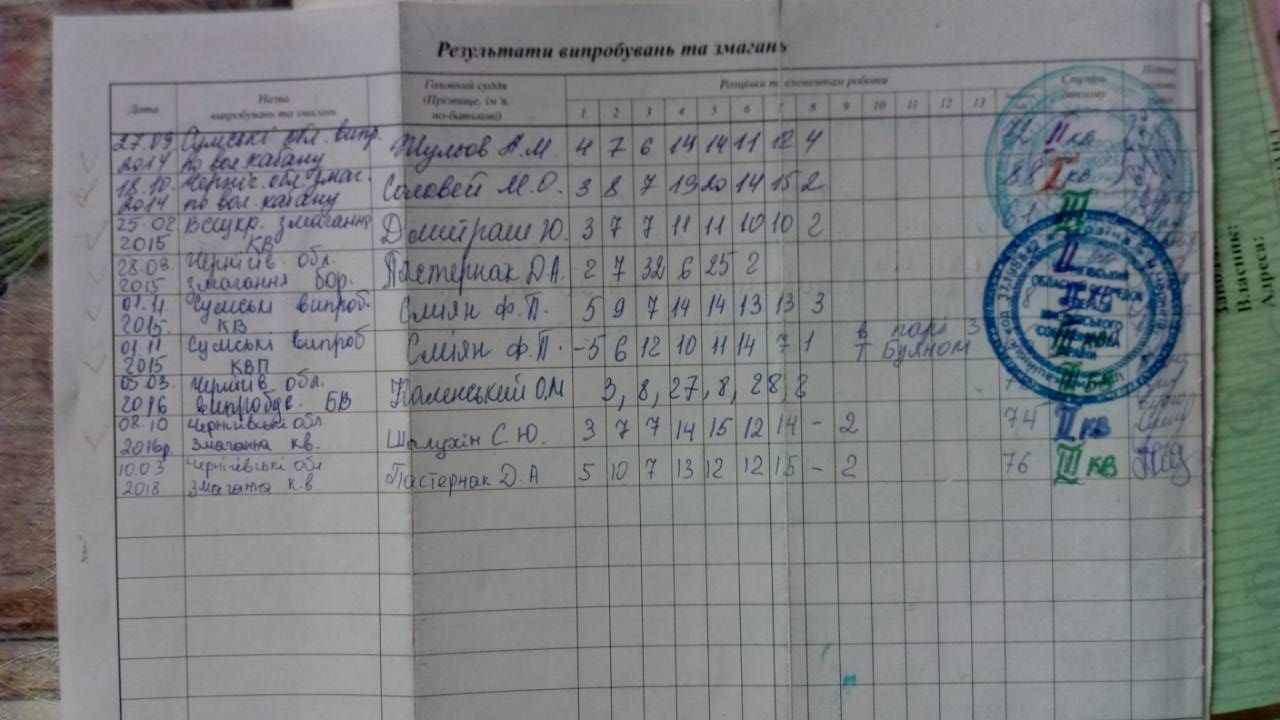 Результати випробувань та змагань
Дата
Назва випробувань та змагань
Головний суддя (Прізвище, ім'я, по-батькові)
Розцінки по елементам роботи
Ступінь
1 2 3 4 5 6 7 8 9 10 11 12 13
27.09. 2014 Сумські обл. випр. по вол. кабану А.М. 4 7 6 14 14 11 12 4 II кв
18.10. 2014 Черніг. обл. змаг. по вол. кабану Соловей М.О. 3 8 7 19 20 14 15 2 88 I кв
25 02 2015 Всеукр. змагання КВ Дмитраш Ю. 3 7 7 11 11 10 10 2 III
28.03. 2015 Чернігів. обл. змагання бор. Пастернак Д.А. 2 7 32 6 25 2 II
01.11 2015. Сумські випроб. КВ Сміян Ф.П. 5 9 7 14 14 13 13 3 II КВ
01.11 2015 Сумські випроб КВП Сміян Ф.П. -5 6 12 10 11 14 7 1 в парі з Т Буяном
05.03. 2016 Чернігів обл. випробув. БВ Каленський О.М 3, 8, 27, 8, 28, 8
08.10 2016р. Чернігівські обл Змагання кв. Шалухін С.Ю. 3 7 7 14 15 12 14 - 2 74 II КВ
10.03 2018 Чернігівські обл Змагання к.в Пастернак Д.А 5 10 7 13 12 12 15 - 2 76 III КВ
Власник:
Адреса: